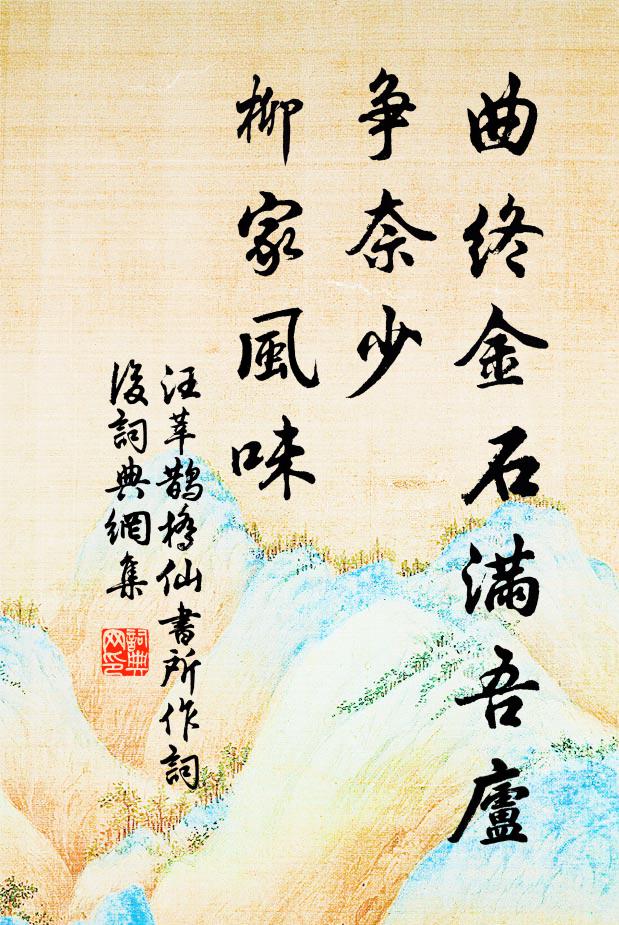 曲终金石滿吾廬
争奈少
柳家風味
汪莘鵲橋仙書所作詞
後詞典網集
詞典
网印